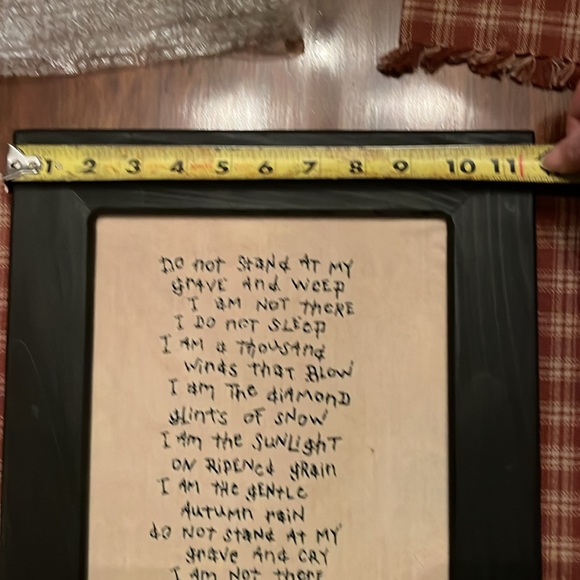 1 2 3 4 5 6 7 8 9 10 11
DO not StaNd AT MY
grAVE And WEEP
I AM NOT thERE
I DO not SLEEp
I AM a thouSAnd
winds that BLOW
I am The diAMonD
gLints of SNOW
I Am the SUNLighT
ON RIPENEd gRain
I AM THE gENtLE
AUTUMN RAiN
do NOT StaNd At MY
grave And CRY
I am Not there